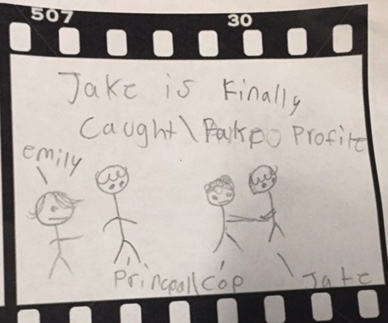 507
30
Jake is Finally
Caught\ Profile
emily
Princpal\ Cop
Jake